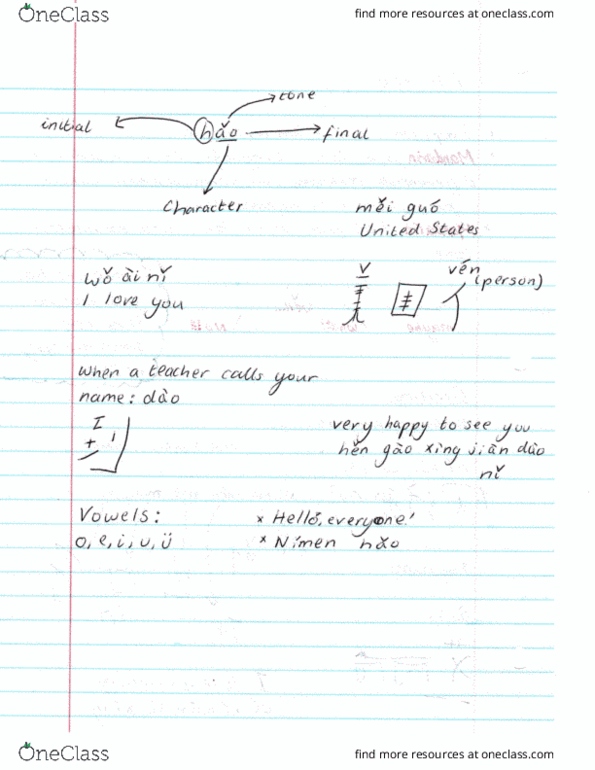 OneClass
find more resources at oneclass.com
tone
initial
hǎo
final
Character
měi guó
United States
wǒ ài nǐ
I love you
vén
(person)
when a teacher calls your
name: dào
very happy to see you
hěn gāo xìng jiān dào
nǐ
Vowels:
o, e, i, u, ü
× Hello, everyone!
× Nǐmen hǎo
OneClass
find more resources at oneclass.com